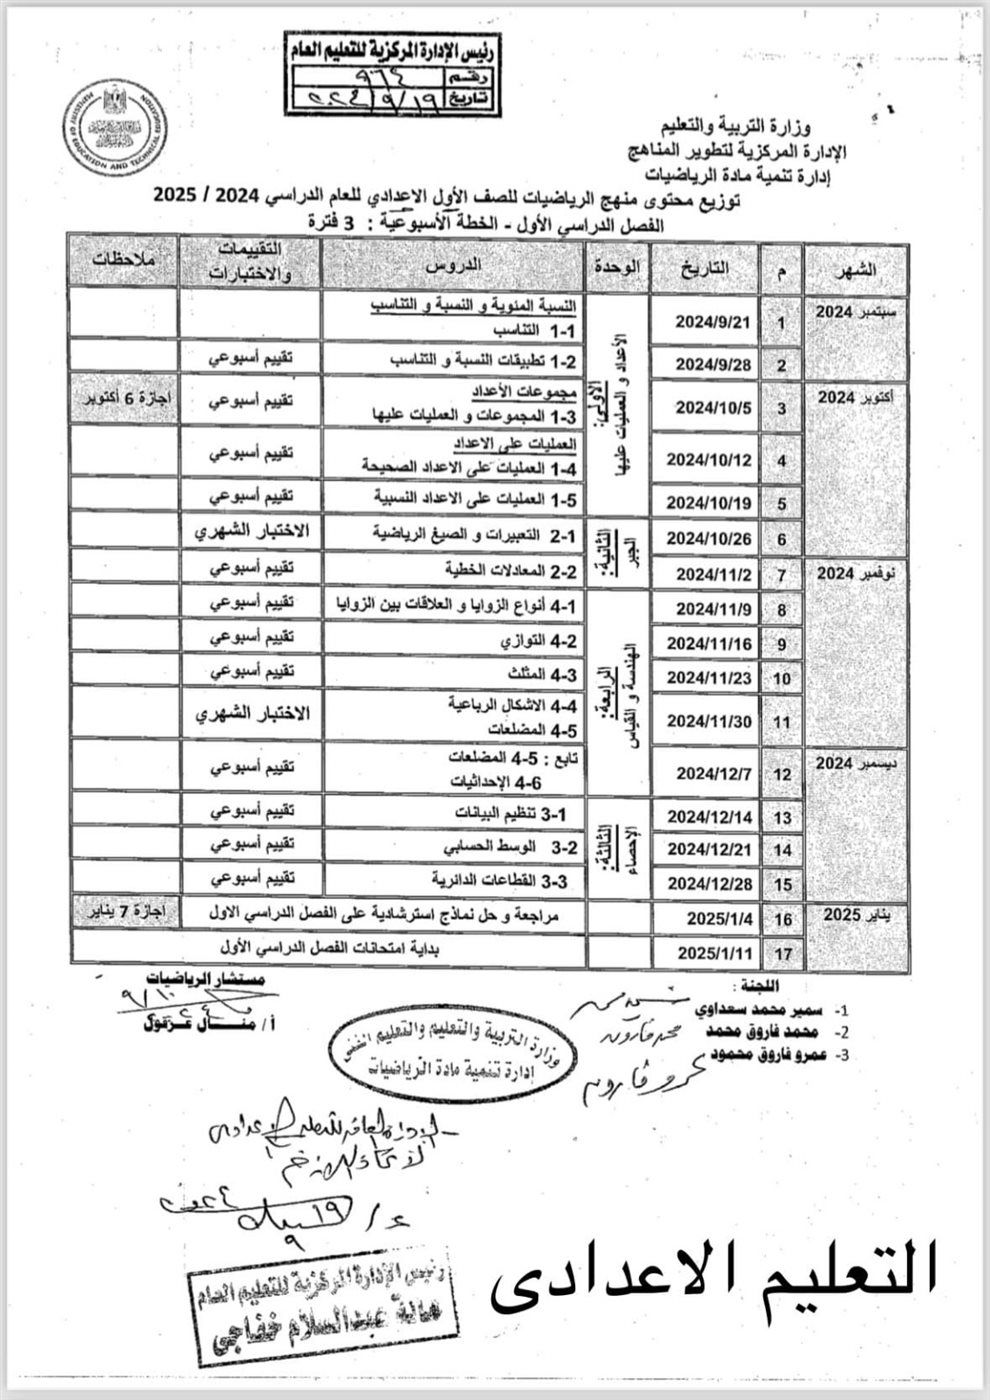 رئيس الإدارة المركزية للتعليم العام
رقم ٩٦٤
تاريخ ٢٠٢٤/٩/١٩
MINISTRY OF EDUCATION AND TECHNICAL EDUCATION
وزارة التربية والتعليم
الإدارة المركزية لتطوير المناهج
إدارة تنمية مادة الرياضيات
توزيع محتوى منهج الرياضيات للصف الأول الاعدادي للعام الدراسي 2024 / 2025
الفصل الدراسي الأول - الخطة الأسبوعية : 3 فترة
الشهر م التاريخ الوحدة الدروس التقييمات والاختبارات ملاحظات
سبتمبر 2024
1 2024/9/21 النسبة المئوية و النسبة و التناسب
1-1 التناسب
2 2024/9/28 1-2 تطبيقات النسبة و التناسب تقييم أسبوعي
الأولى:
الأعداد و العمليات عليها
أكتوبر 2024
3 2024/10/5 مجموعات الأعداد
1-3 المجموعات و العمليات عليها تقييم أسبوعي اجازة 6 أكتوبر
4 2024/10/12 العمليات على الاعداد
1-4 العمليات على الاعداد الصحيحة تقييم أسبوعي
5 2024/10/19 1-5 العمليات على الاعداد النسبية تقييم أسبوعي
الثانية:
الجبر
6 2024/10/26 2-1 التعبيرات و الصيغ الرياضية الاختبار الشهري
نوفمبر 2024
7 2024/11/2 2-2 المعادلات الخطية تقييم أسبوعي
الرابعة:
الهندسة و القياس
8 2024/11/9 4-1 أنواع الزوايا و العلاقات بين الزوايا تقييم أسبوعي
9 2024/11/16 4-2 التوازي تقييم أسبوعي
10 2024/11/23 4-3 المثلث تقييم أسبوعي
11 2024/11/30 4-4 الاشكال الرباعية
4-5 المضلعات الاختبار الشهري
ديسمبر 2024
12 2024/12/7 تابع : 4-5 المضلعات
4-6 الإحداثيات تقييم أسبوعي
الثالثة:
الإحصاء
13 2024/12/14 3-1 تنظيم البيانات تقييم أسبوعي
14 2024/12/21 3-2 الوسط الحسابي تقييم أسبوعي
15 2024/12/28 3-3 القطاعات الدائرية تقييم أسبوعي
يناير 2025
16 2025/1/4 مراجعة و حل نماذج استرشادية على الفصل الدراسي الاول اجازة 7 يناير
17 2025/1/11 بداية امتحانات الفصل الدراسي الأول
اللجنة :
1- سمير محمد سعداوي
2- محمد فاروق محمد محمد فاروق
3- عمرو فاروق محمود عمرو فاروق
مستشار الرياضيات
أ / منال عزقول
وزارة التربية والتعليم والتعليم الفنى
إدارة تنمية مادة الرياضيات
رئيس الإدارة المركزية للتعليم العام
هالة عبدالسلام خفاجي
التعليم الاعدادى